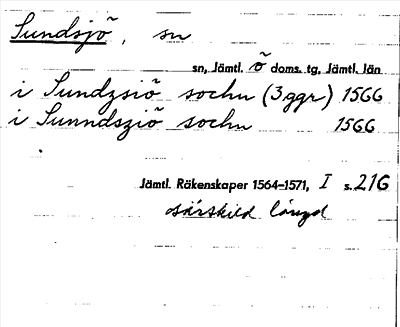 Sundsjö, sn
sn, Jämtl. Ö doms. tg, Jämtl. län
i Sundzsiö sochn (3 ggr) 1566
i Sunndsziö sochn 1566
Jämtl. Räkenskaper 1564–1571, I s. 216
särskild längd